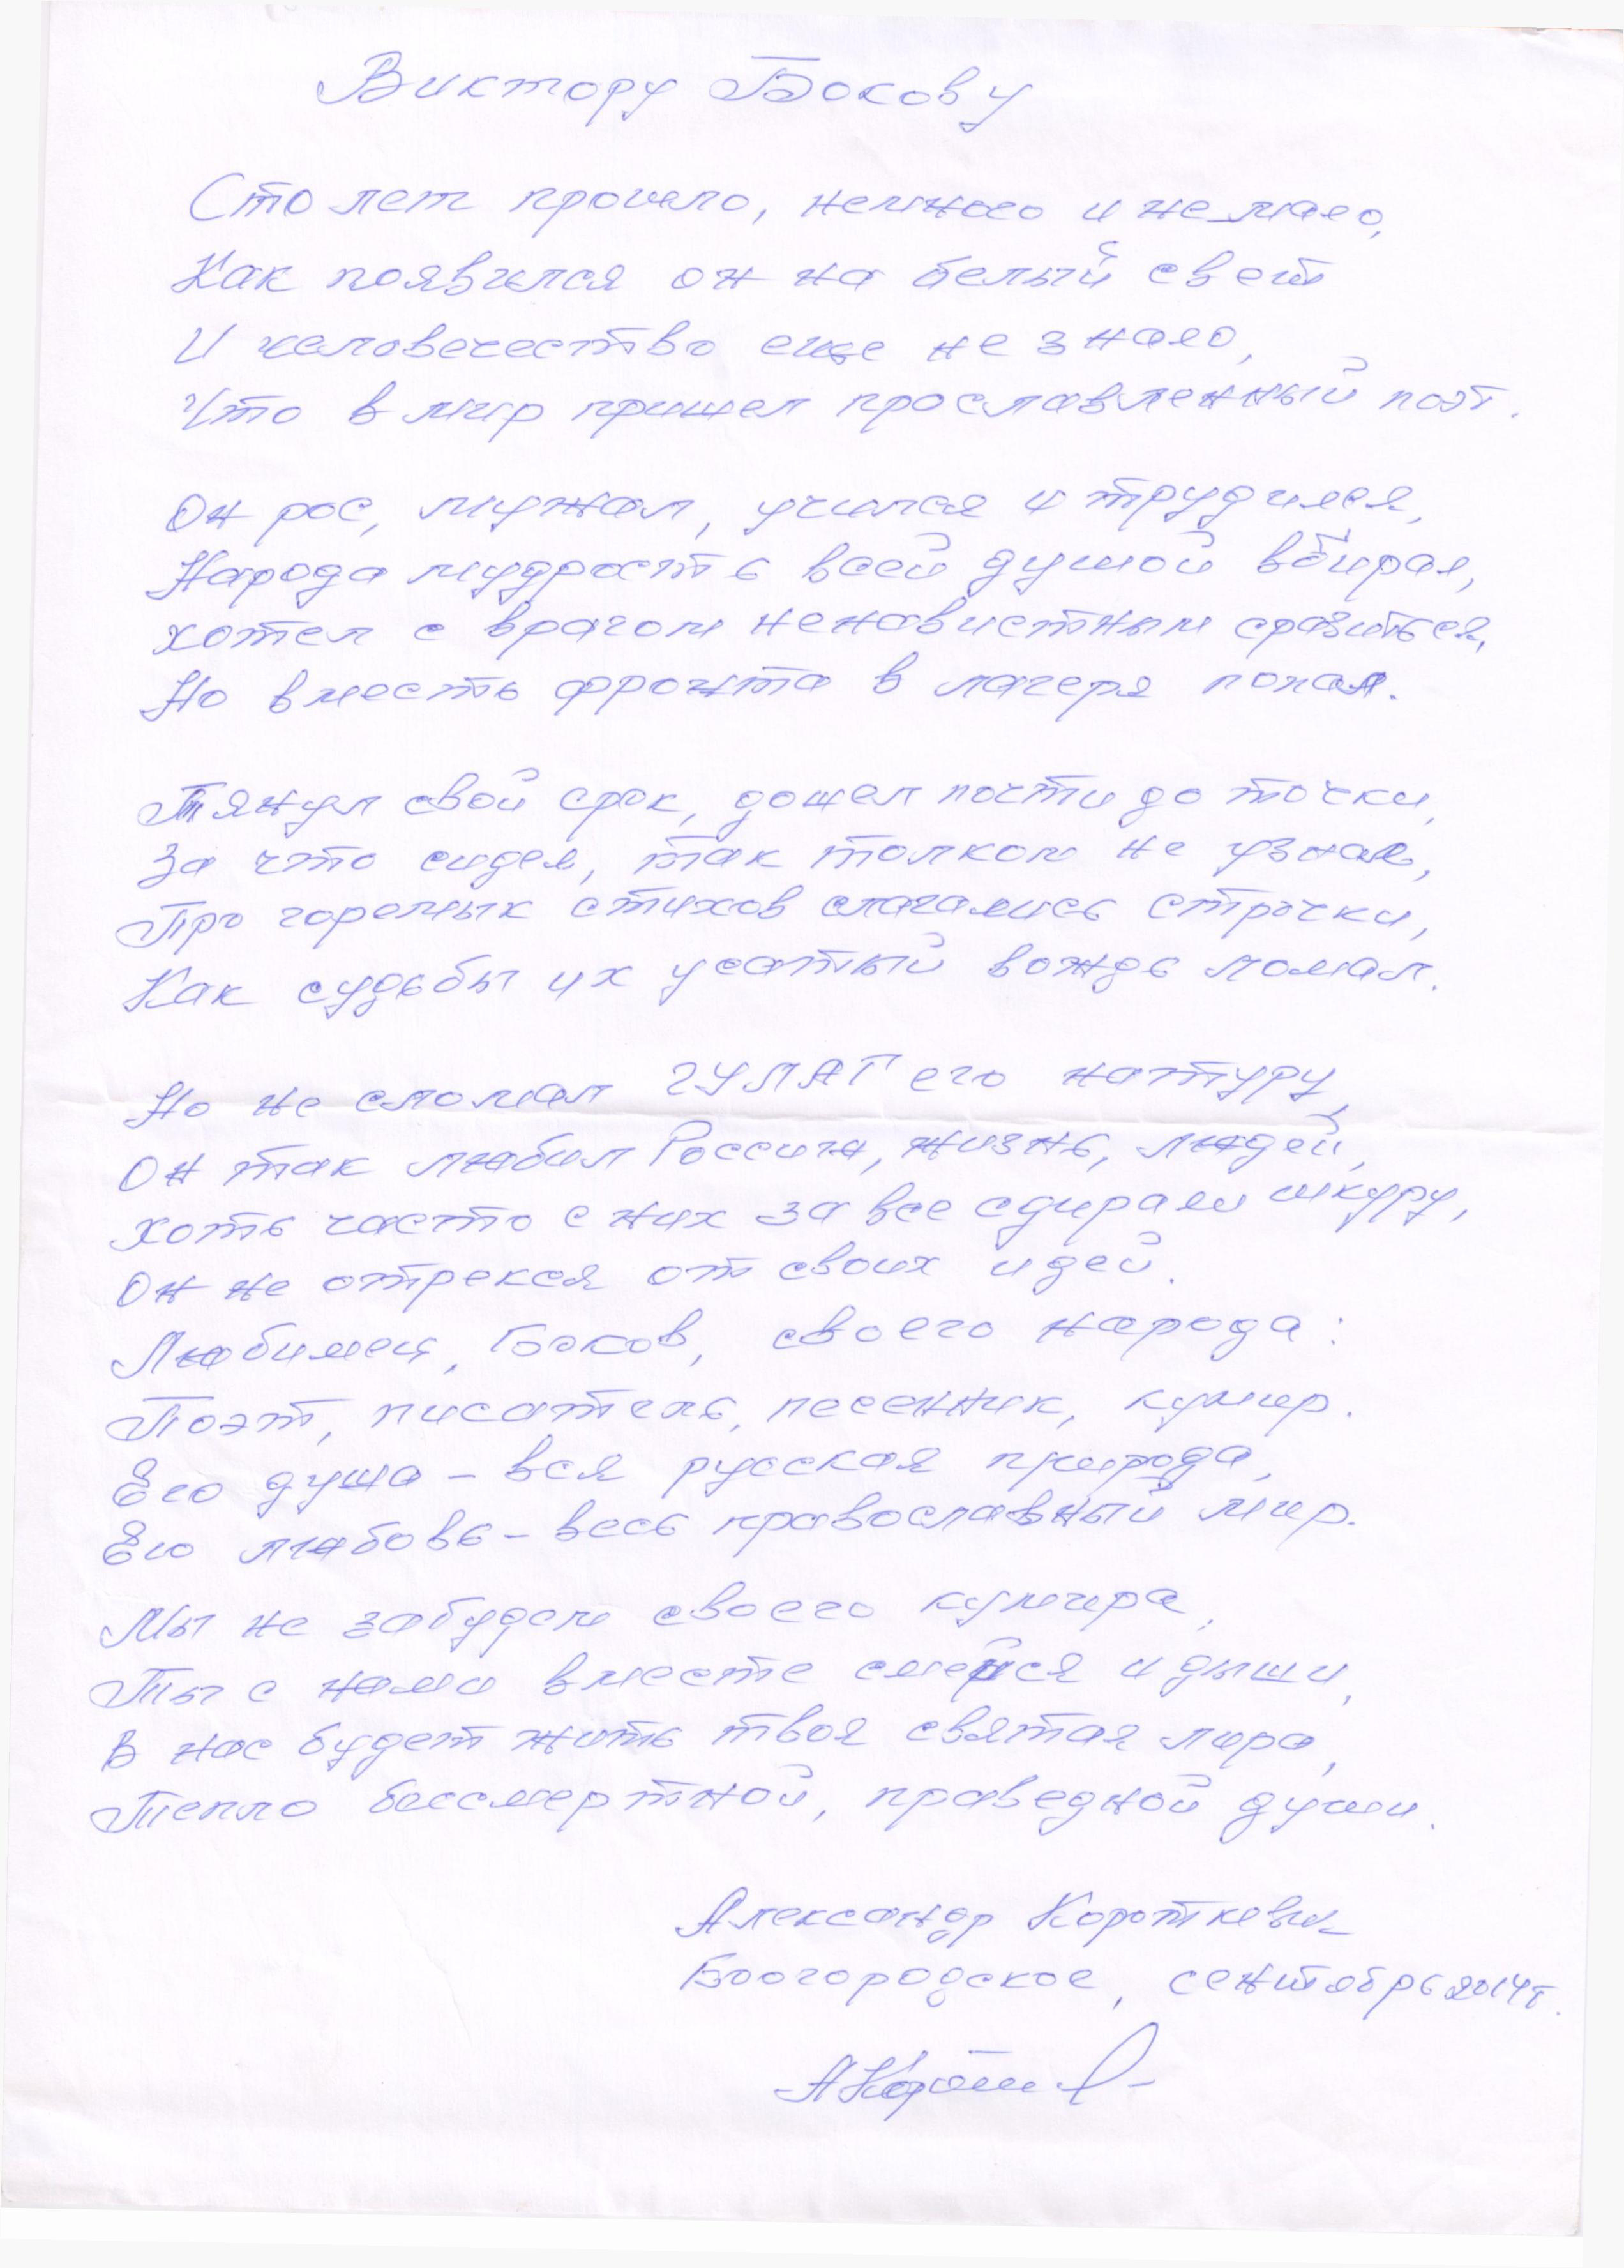 Виктору Бокову
Сто лет прошло, немного и не мало,
Как появился он на белый свет
И человечество еще не знало,
Что в мир пришел прославленный поэт.
Он рос, мужал, учился и трудился,
Народа мудрость всей душой вбирал,
Хотел с врагом ненавистным сразиться,
Но вместь фронта в лагеря попал.
Тянул свой срок, дошел почти до точки,
За что сидел, так толком не узнал,
Про горемык стихов слагались строчки,
Как судьбы их усатый вождь ломал.
Но не сломал ГУЛАГ его натуру,
Он так любил Россию, жизнь, людей,
Хоть часто с них за все сдирали шкуру,
Он не отрекся от своих идей.
Любимец, Боков, своего народа:
Поэт, писатель, песенник, кумир.
Его душа – вся русская природа,
Его любовь – весь православный мир.
Мы не забудем своего кумира,
Ты с нами вместе смейся и дыши,
В нас будет жить твоя святая лира,
Тепло бессмертной, праведной души.
Александр Короткевич
Боогородское, сентябрь 2014г.